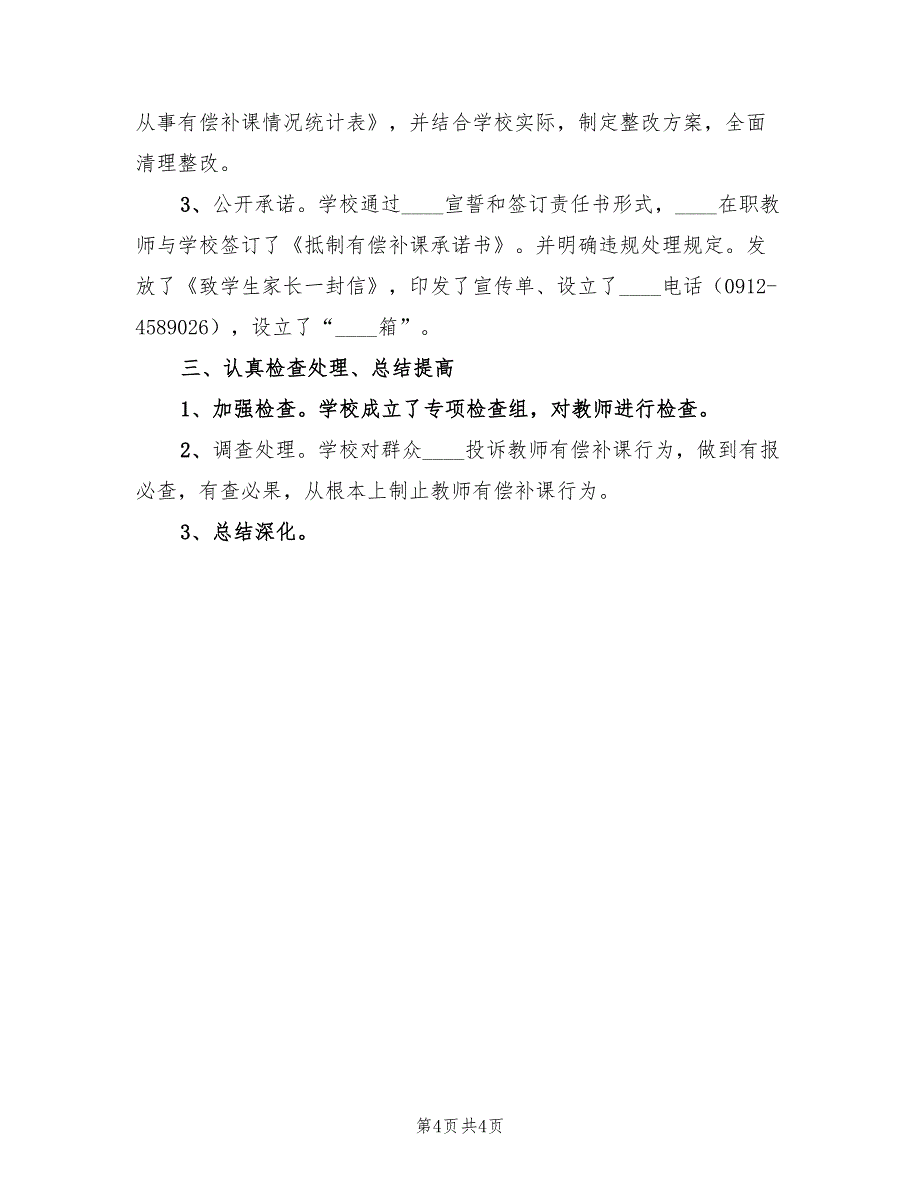 从事有偿补课情况统计表》，并结合学校实际，制定整改方案，全面
清理整改。
3、公开承诺。学校通过____宣誓和签订责任书形式，____在职教
师与学校签订了《抵制有偿补课承诺书》。并明确违规处理规定。发
放了《致学生家长一封信》，印发了宣传单、设立了____电话（0912-
4589026），设立了“____箱”。
三、认真检查处理、总结提高
1、加强检查。学校成立了专项检查组，对教师进行检查。
2、调查处理。学校对群众____投诉教师有偿补课行为，做到有报
必查，有查必果，从根本上制止教师有偿补课行为。
3、总结深化。
第4页 共4页